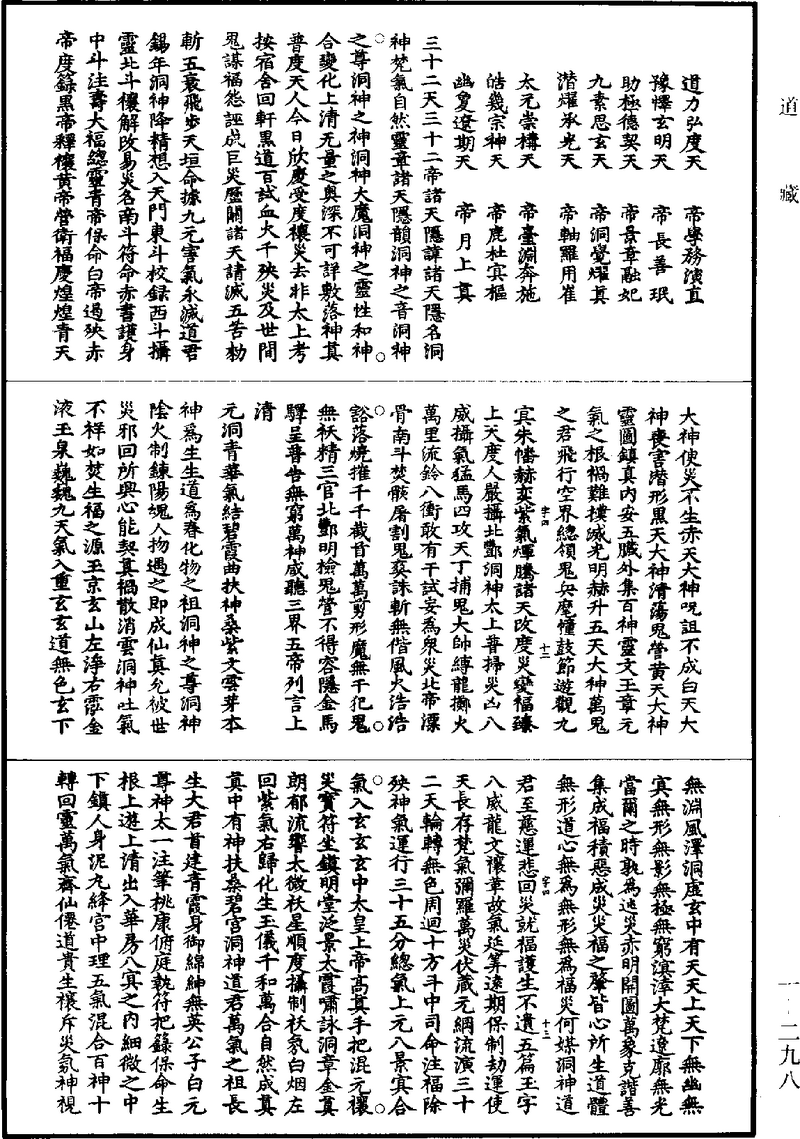 道藏
一-二九八
道力弘度天　帝學務演直
豫懌玄明天　帝長善珉
助極德契天　帝景章融妃
九素思玄天　帝洞覺燿真
潛燿承光天　帝軸羅用崔
太元崇檮天　帝臺淵奔施
皓幾宗神天　帝鹿杜宾樞
幽敻遼期天　帝月上真
三十二天三十二帝諸天隱諱諸天隱名洞
神梵氣自然靈章諸天隱韻洞神之音洞神
之尊洞神之神洞神大魔洞神之靈性和神
合變化上清无量之奧深不可詳敷落神真
普度天人今日欣慶受度禳災去非太上考
按宿舍回軒黑道百試血火千殃災及世間
鬼謀福怨誣成巨災歷關諸天請滅五苦勑
斬五衰飛步天垣命據九元害氣永滅道君
錫年洞神降精想入天門東斗校録西斗攝
靈北斗禳解改易災名南斗符命赤書護身
中斗注壽大福總靈青帝保命白帝遏殃赤
帝度録黑帝釋禳黄帝營衛福慶煌煌青天
大神使災不生赤天大神呪詛不成白天大
神穰害潛形黑天大神清蕩鬼營黄天大神
靈圖鎮真内安五臟外集百神靈文玉章元
氣之根禍難撲滅光明赫升五天大神萬鬼
之君飛行空界總領鬼兵麾幢鼓節遊觀九
宾朱幡赫奕紫氣煇騰諸天改度災變福臻
上天度人嚴攝北酆洞神太上普掃災凶八
威攝氣猛馬四攻天丁捕鬼大帥縛龍擲火
萬里流鈴八衝敢有干試妄為衆災北帝凛
骨南斗焚骸屠割鬼爽誅斬無偕風火浩浩
谿落燒摧千千截首萬萬剪形魔無干犯鬼
無袄精三官北酆明檢鬼營不得容隱金馬
驛呈普告無窮萬神咸聽三界五帝列言上
清
元洞青華氣結碧霞曲扶神桑紫文雲芽本
神為生生道為春化物之祖洞神之尊洞神
陰火制鍊陽魂人物遇之即成仙真允被世
災邪回所興心能契真禍散消雲洞神吐氣
不祥如焚生福之源玉京玄山左浄右霐金
液玉泉巍巍九天氣入重玄玄道無色玄下
無淵風澤洞虚玄中有天天上天下無幽無
冥無形無影無極無窮溟涬大梵遼廓無光
當爾之時孰為逃災赤明開圖萬象克諧善
集成福積惡成災災福之肇皆心所生道體
無形道心無為無形無為福災何媒洞神道
君至慈運悲回災就福護生不遺五篇玉字
八威龍文禳章故氣延算遠期保制劫運使
天長存梵氣彌羅萬災伏藏元綱流演三十
二天輪轉無色周迴十方斗中司命注福除
殃神氣運行三十五分總氣上元八景宾合
氣入玄玄玄中太皇上帝高真手把混元禳
災寳符坐鎮明堂泛景太霞嘯詠洞章金真
朗郁流響太微袄星順度攝制袄氛白烟左
回紫氣右歸化生玉儀千和萬合自然成真
真中有神扶桑碧宫洞神道君萬氣之祖長
生大君首建青霞身御錦紳無英公子白元
尊神太一注筆桃康俯庭執符把籙保命生
根上遊上清出入華房八宾之内細微之中
下鎮人身泥丸絳宫中理五氣混合百神十
轉回靈萬氣齊仙僊道貴生禳斥災氛神視